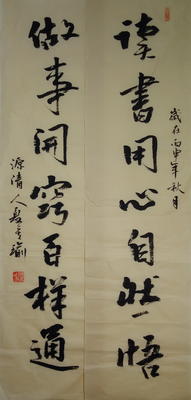 读书用心自然悟
岁在丙申年秋月
做事开窍百样通
源清人